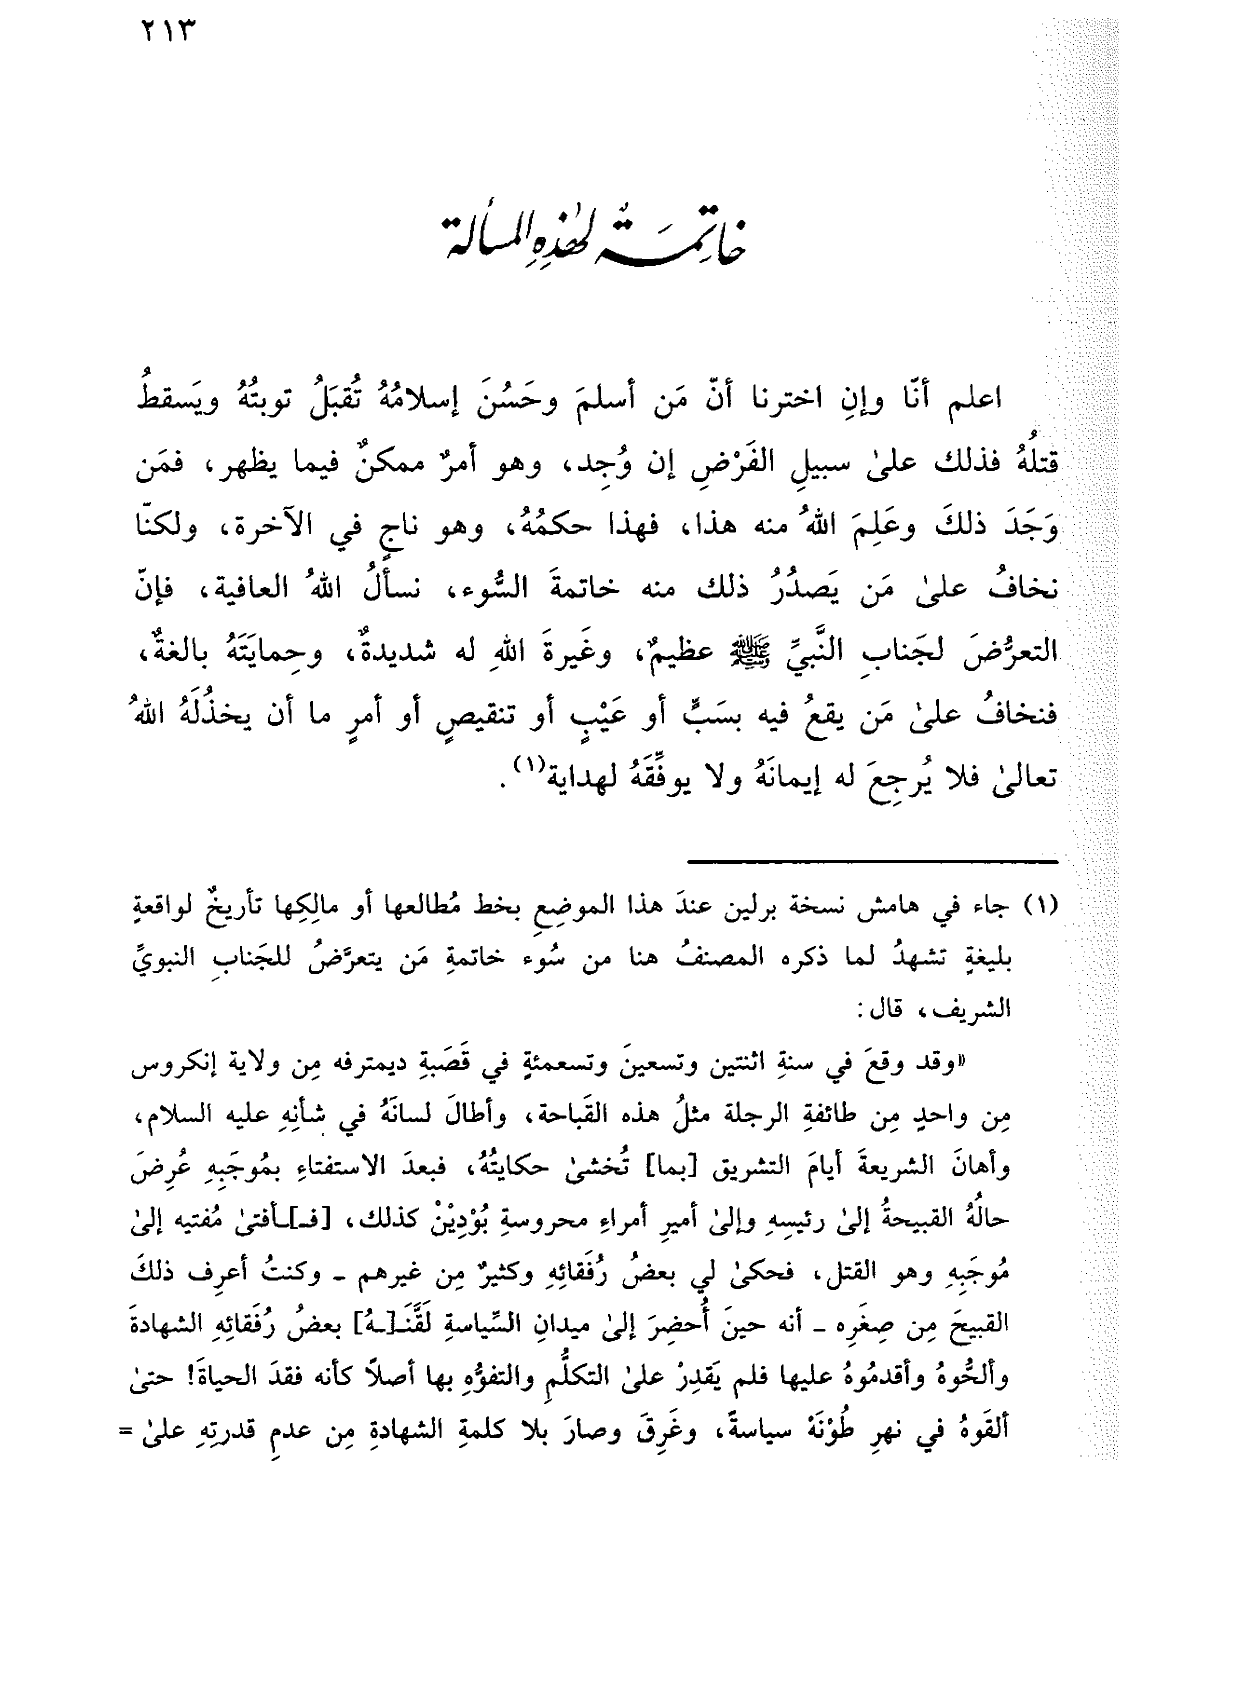 ٢١٣
خاتِمَةٌ لهٰذِهِ المسألة
اعلم أنّا وإنِ اخترنا أنّ مَن أسلمَ وحَسُنَ إسلامُهُ تُقبَلُ توبتُهُ ويَسقطُ
قتلُهُ فذلك علىٰ سبيلِ الفَرْضِ إن وُجِد، وهو أمرٌ ممكنٌ فيما يظهر، فمَن
وَجَدَ ذلكَ وعَلِمَ اللهُ منه هذا، فهذا حكمُهُ، وهو ناجٍ في الآخرة، ولكنّا
نخافُ علىٰ مَن يَصدُرُ ذلك منه خاتمةَ السُّوء، نسألُ اللهُ العافية، فإنّ
التعرُّضَ لجَنابِ النَّبيِّ ﷺ عظيمٌ، وغَيرةَ اللهِ له شديدةٌ، وحِمايَتَهُ بالغةٌ،
فنخافُ علىٰ مَن يقعُ فيه بسَبٍّ أو عَيْبٍ أو تنقيصٍ أو أمرٍ ما أن يخذُلَهُ اللهُ
تعالىٰ فلا يُرجِعَ له إيمانَهُ ولا يوفِّقَهُ لهداية(١).
(١) جاء في هامش نسخة برلين عندَ هذا الموضِعِ بخط مُطالعها أو مالِكِها تأريخٌ لواقعةٍ
بليغةٍ تشهدُ لما ذكره المصنفُ هنا من سُوء خاتمةِ مَن يتعرَّضُ للجَنابِ النبويِّ
الشريف، قال:
«وقد وقعَ في سنةِ اثنتين وتسعينَ وتسعمئةٍ في قَصَبةِ ديمترفه مِن ولاية إنكروس
مِن واحدٍ مِن طائفةِ الرجلة مثلُ هذه القَباحة، وأطالَ لسانَهُ في شأنِهِ عليه السلام،
وأهانَ الشريعةَ أيامَ التشريق [بما] تُخشىٰ حكايتُهُ، فبعدَ الاستفتاءِ بمُوجَبِهِ عُرِضَ
حالُهُ القبيحةُ إلىٰ رئيسِهِ وإلىٰ أميرِ أمراءِ محروسةِ بُوْدِيْنْ كذلك، [فـ]ـأفتىٰ مُفتيه إلىٰ
مُوجَبِهِ وهو القتل، فحكىٰ لي بعضُ رُفَقائِهِ وكثيرٌ مِن غيرهم ـ وكنتُ أعرِف ذلكَ
القبيحَ مِن صِغَرِه ـ أنه حينَ أُحضِرَ إلىٰ ميدانِ السِّياسةِ لَقَّنَـ[ـهُ] بعضُ رُفَقائِهِ الشهادةَ
وألحُّوهُ وأقدمُوهُ عليها فلم يَقدِرْ علىٰ التكلُّمِ والتفوُّهِ بها أصلاً كأنه فقدَ الحياةَ! حتىٰ
ألقَوهُ في نهرِ طُوْنَهْ سياسةً، وغَرِقَ وصارَ بلا كلمةِ الشهادةِ مِن عدمِ قدرتِهِ علىٰ =